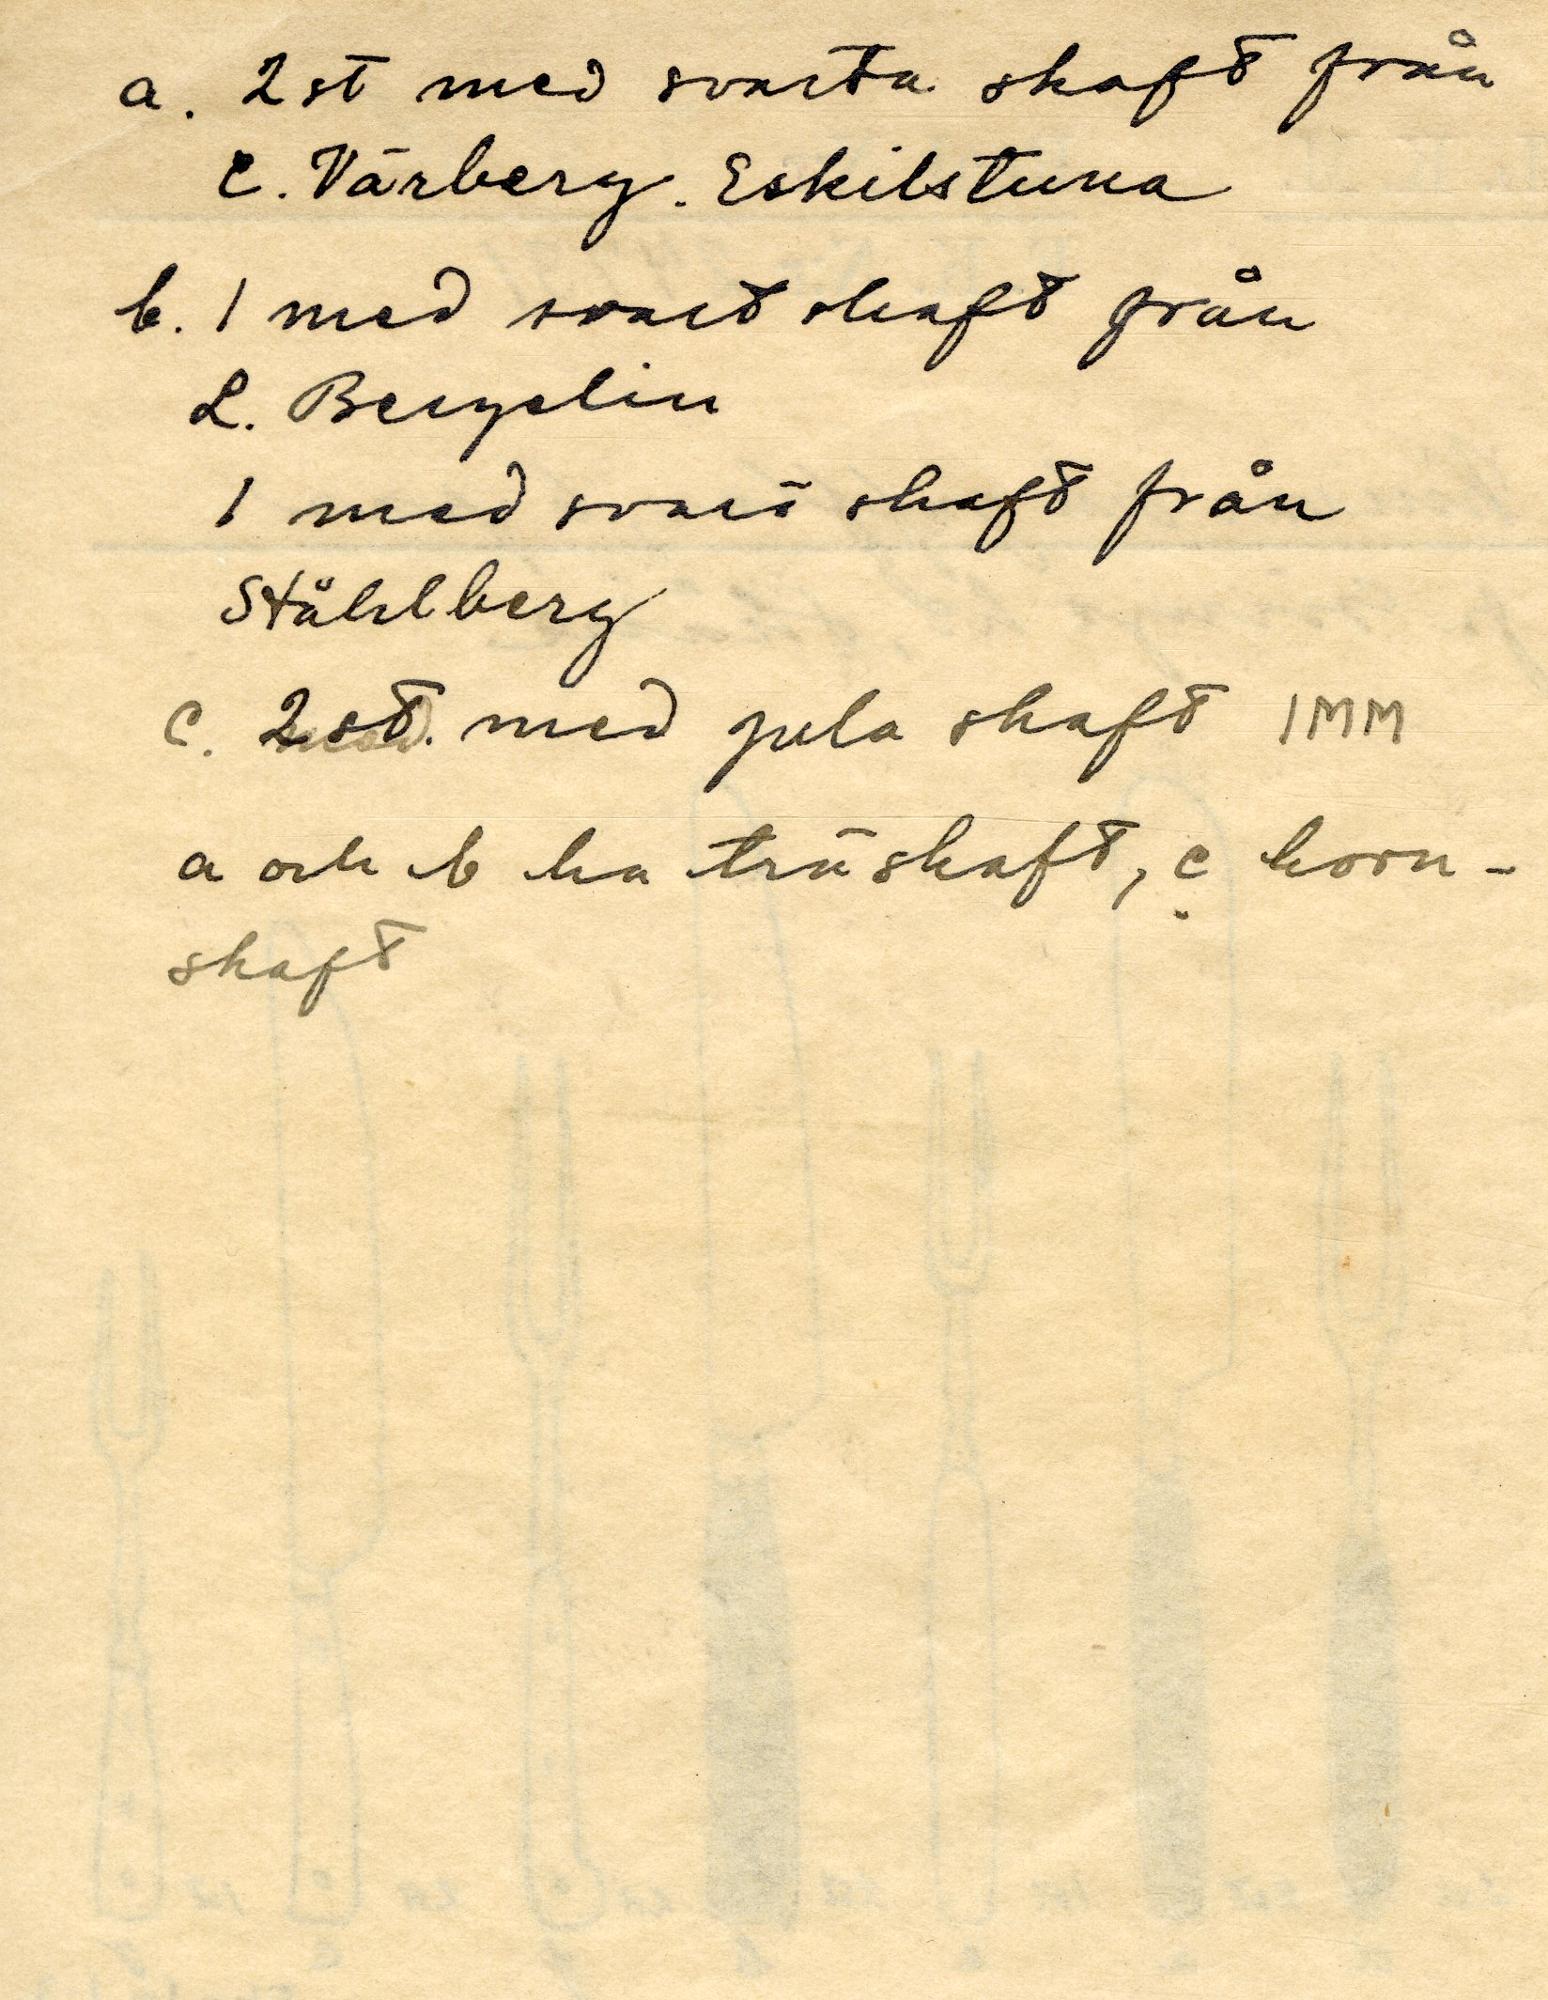 a. 2 st med svarta skaft från
C. Värberg. Eskilstuna
b. 1 med svart skaft från
L. Bergelin
1 med svart skaft från
Ståhlberg
c. 2 st. med gula skaft IMM
a och b ha träskaft, c horn-
skaft